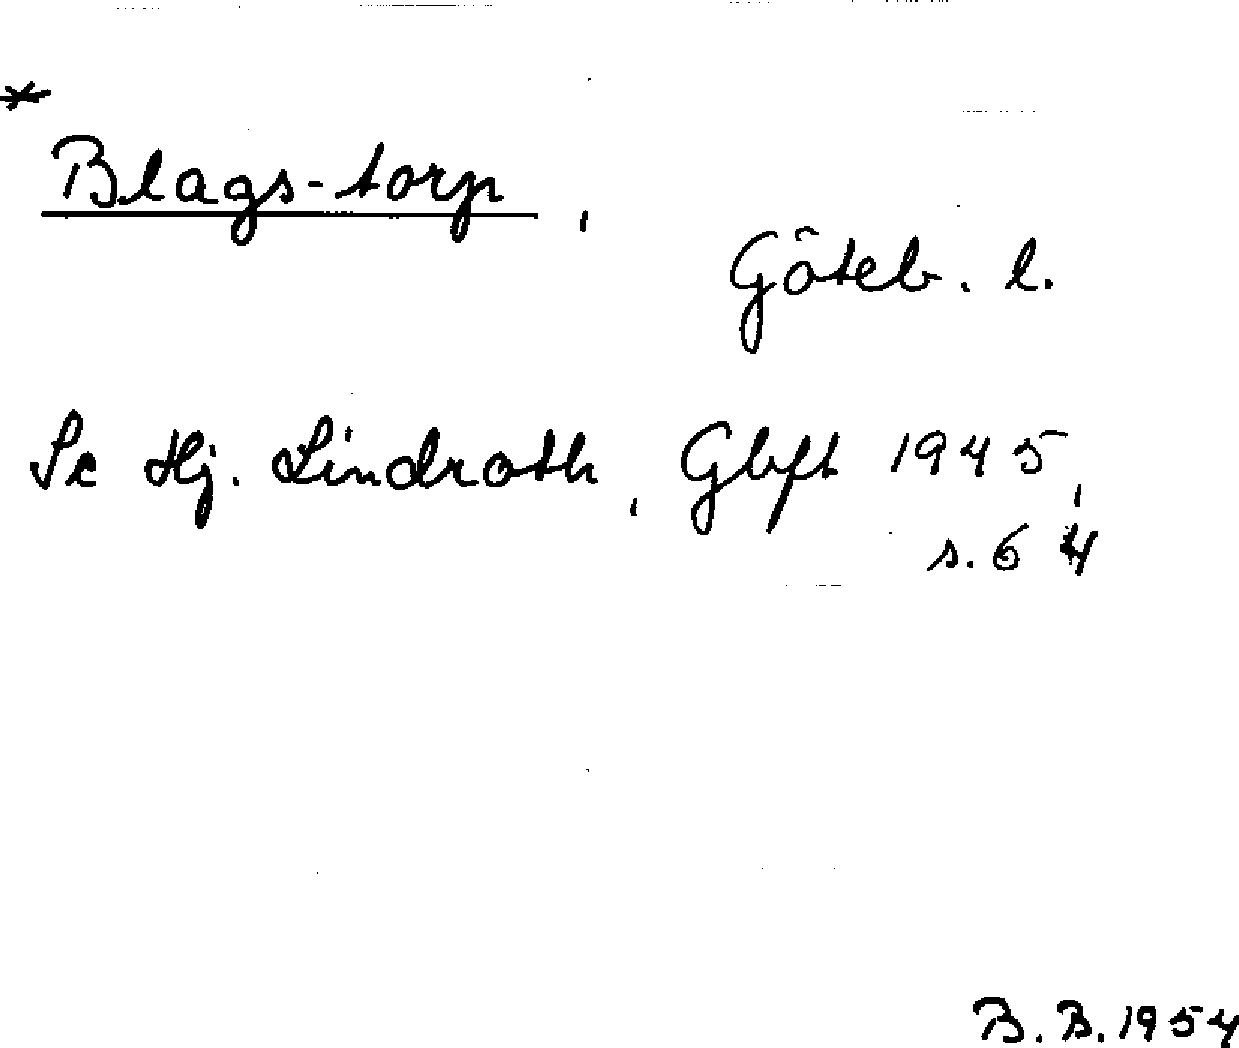 *
Blags-torp,
Göteb. l.
Se Hj. Lindroth, Gbft 1945,
s. 64
B. B. 1954